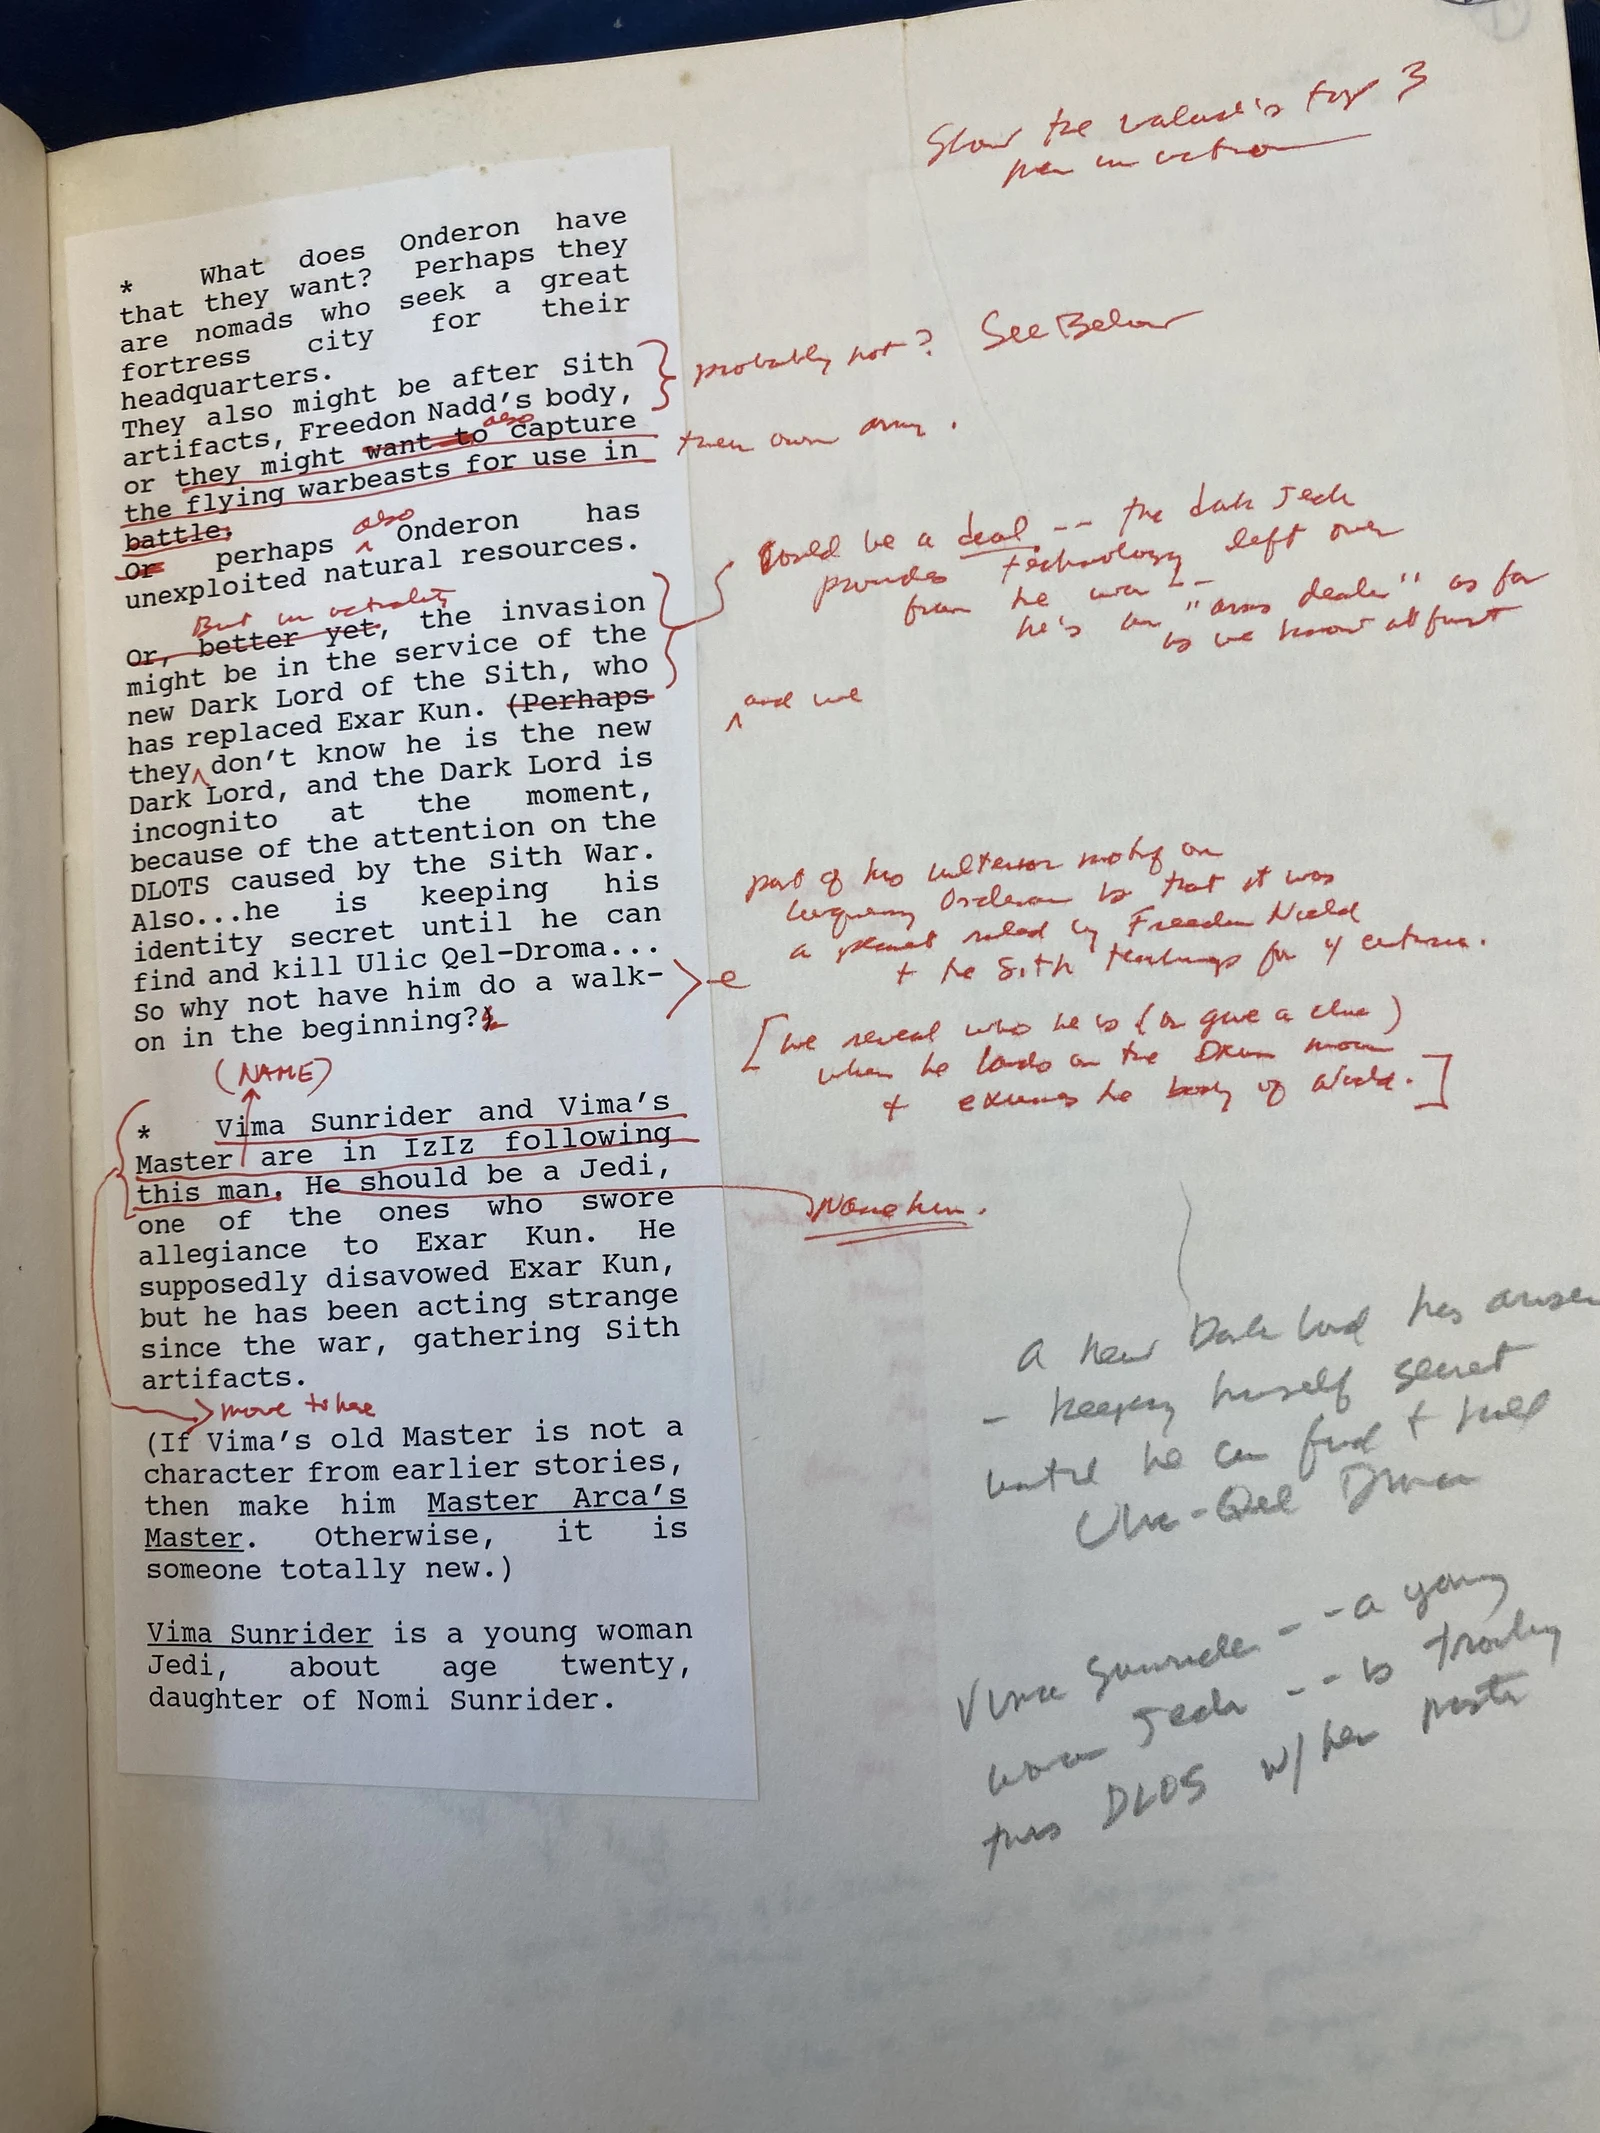 Show the warlord's top 3
men in action
* What does Onderon have
that they want? Perhaps they
are nomads who seek a great
fortress city for their
headquarters.
They also might be after Sith
artifacts, Freedon Nadd's body,
probably not? See Below
also
or they might want to capture
the flying warbeasts for use in
their own army.
battle.
also
Or perhaps Onderon has
unexploited natural resources.
But in actuality
Or, better yet, the invasion
might be in the service of the
new Dark Lord of the Sith, who
has replaced Exar Kun. (Perhaps
they don't know he is the new
Dark Lord, and the Dark Lord is
incognito at the moment,
because of the attention on the
DLOTS caused by the Sith War.
Also...he is keeping his
identity secret until he can
find and kill Ulic Qel-Droma...
So why not have him do a walk-
on in the beginning?
Could be a deal -- the dark Jedi
provides technology left over
from the war --
he's an "arms dealer" as far
as we know at first
and we
part of his ulterior motif on
Onderon is that it was
a planet ruled by Freedon Nadd
+ the Sith teachings for 4 centuries.
[we reveal who he is (or give a clue)
when he lands on the Dxun moon
+ exhumes the body of Nadd.]
(NAME)
* Vima Sunrider and Vima's
Master are in IzIz following
this man. He should be a Jedi,
Name him.
one of the ones who swore
allegiance to Exar Kun. He
supposedly disavowed Exar Kun,
but he has been acting strange
since the war, gathering Sith
artifacts.
move to here
(If Vima's old Master is not a
character from earlier stories,
then make him Master Arca's
Master. Otherwise, it is
someone totally new.)
Vima Sunrider is a young woman
Jedi, about age twenty,
daughter of Nomi Sunrider.
a new Dark Lord has arisen
- keeping himself secret
until he can find + kill
Ulic-Qel Droma
Vima Sunrider -- a young
woman Jedi -- is tracking
this DLOS w/ her master